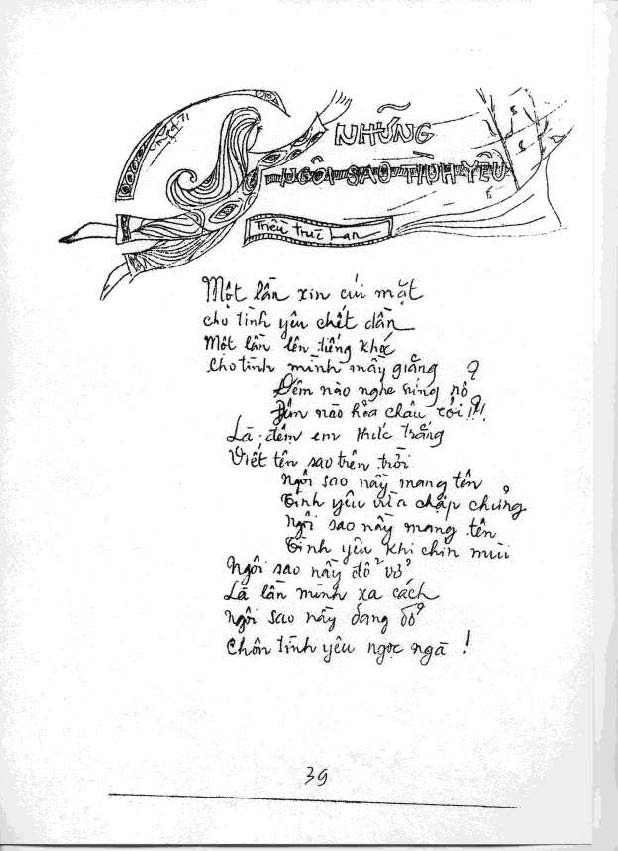 NHỮNG
NGÔI SAO TÌNH YÊU
Triều Trúc Lan
Một lần xin cúi mặt
cho tình yêu chết dần
Một lần lên tiếng khóc
Cho tình mình mấy giăng ?
Đêm nào nghe súng nổ
Đêm nào hỏa châu rơi !!!
Là đêm em thức trắng
Viết tên sao trên trời
Ngôi sao nầy mang tên
Tình yêu vừa chập chững
Ngôi sao nầy mang tên
Tình yêu khi chín mùi
Ngôi sao nầy đổ vỡ
Là lần mình xa cách
Ngôi sao nầy đang đổ
Chôn tình yêu ngọc ngà !
39